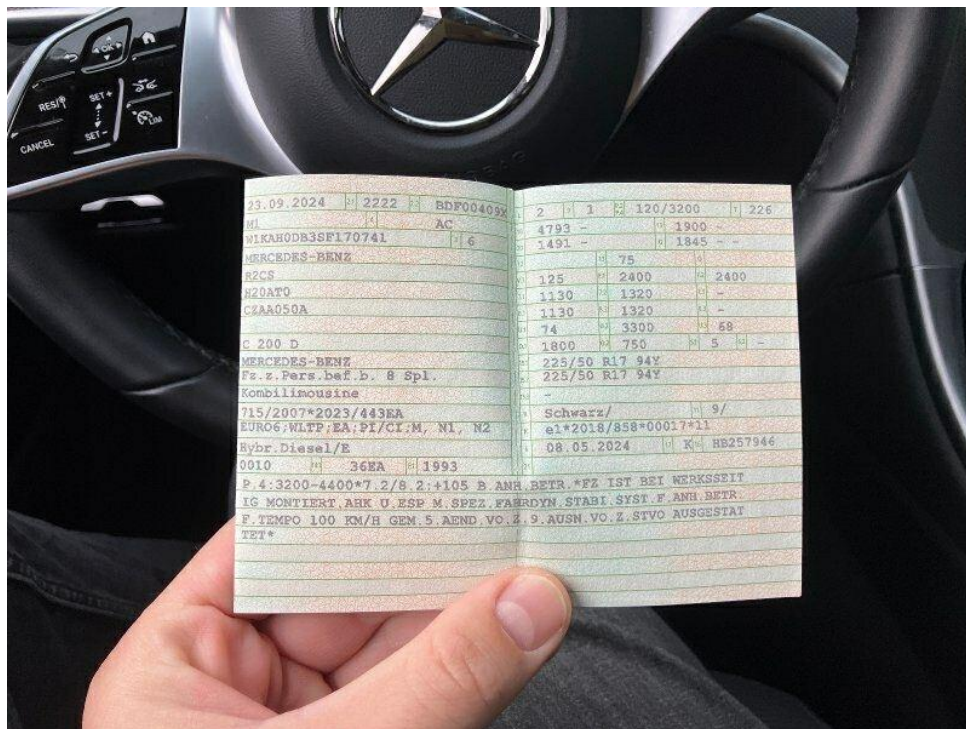 OK
RES/
SET +
SET -
CANCEL
LIM
23.09.2024 2222 BDF00409X
M1 AC
W1KAH0DB3SF170741 6
MERCEDES-BENZ
R2CS
H20AT0
CZAA050A
C 200 D
MERCEDES-BENZ
Fz.z.Pers.bef.b. 8 Spl.
Kombilimousine
715/2007*2023/443EA
EURO6;WLTP;EA;PI/CI;M, N1, N2
Hybr.Diesel/E
0010 36EA 1993
2 1 120/3200 226
4793 - 1900 -
1491 - 1845 - -
75
125 2400 2400
1130 1320 -
1130 1320 -
74 3300 68
1800 750 5 -
225/50 R17 94Y
225/50 R17 94Y
-
Schwarz/ 9/
e1*2018/858*00017*11
08.05.2024 K HB257946
P.4:3200-4400*7.2/8.2:+105 B.ANH.BETR.*FZ IST BEI WERKSSEIT
IG MONTIERT.AHK U.ESP M.SPEZ.FAHRDYN.STABI.SYST.F.ANH.BETR.
F.TEMPO 100 KM/H GEM.5.AEND.VO.Z.9.AUSN.VO.Z.STVO AUSGESTAT
TET*